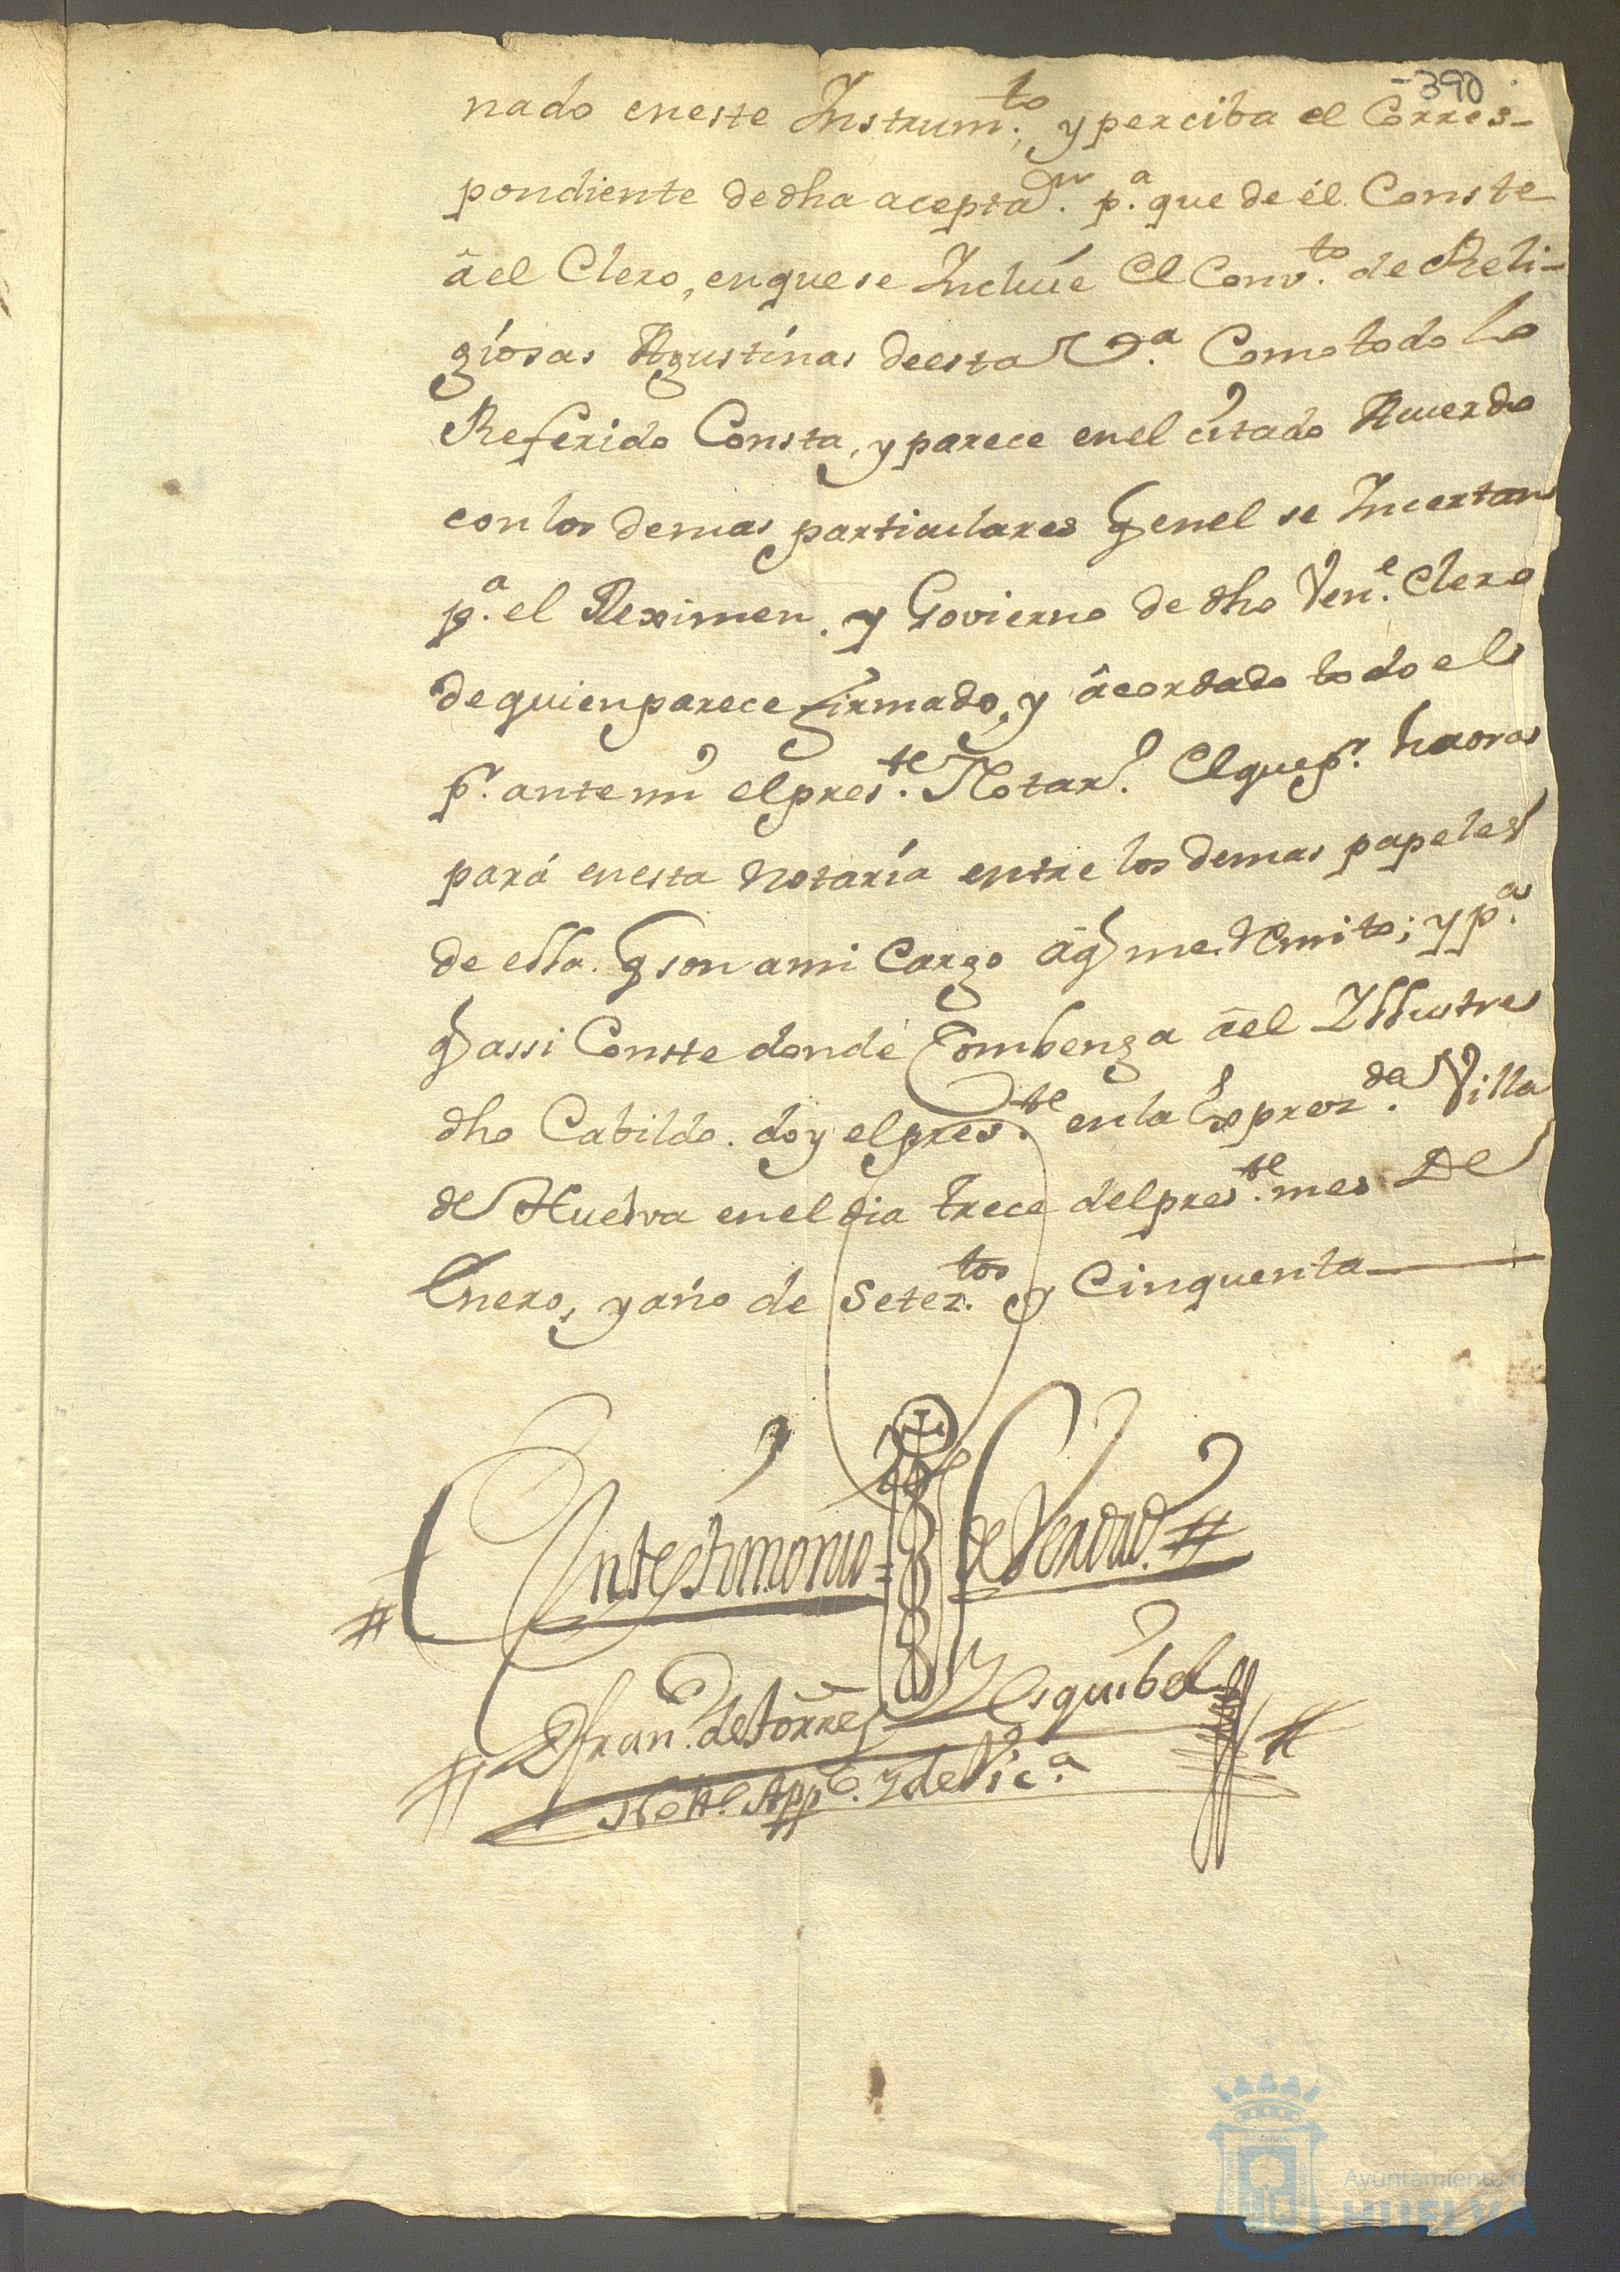 -390
nado en este Instrum.to, y perciba el Corres-
pondiente de dha aceptaon. p.a que de él Conste
â el Clero, en que se Incluíe el Conv.to de Reli-
giosas Agustinas de esta V.a Como todo lo
Referido Consta, y parece en el citado Acuerdo
con los demas particulares q en el se Incertan
p.a el Reximen. y Govierno de dho Ven.e Clero
de quien parece firmado, y âcordado todo el
p.r ante mi el pres.te Notar.o el que p.r haora
pará en esta Notaría entre los demas papeles
de ella. q son a mi Cargo âq me Remito; y p.a
q assi Conste donde Combenga âel Illustre
dho Cabildo. doy el pres.te en la Exprez.da Villa
de Huelva en el dia trece del pres.te mes De
Enero, y año de Setez.tos y Cinquenta
En testimonio = de Verdad. #
D fran.co de Torres y Esquibel
Nott.o App.co y de Vic.a
Ayuntamiento de
HUELVA